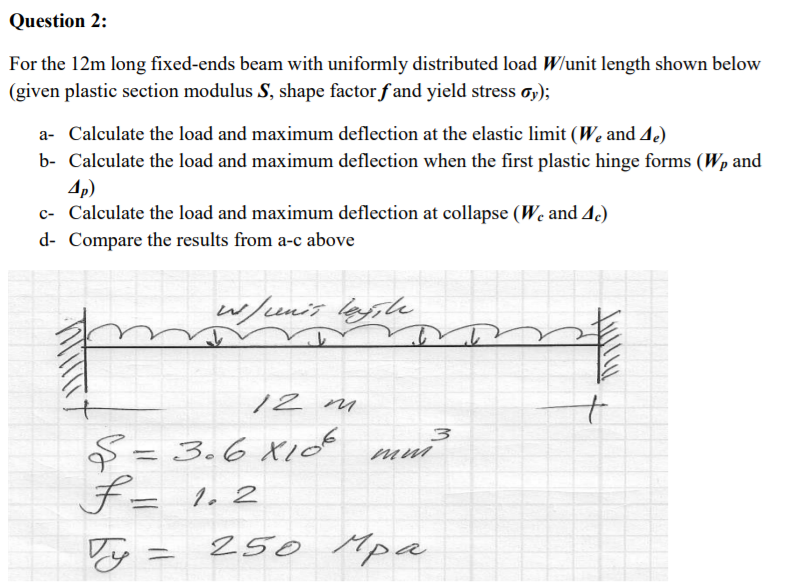 Question 2:
For the 12m long fixed-ends beam with uniformly distributed load W/unit length shown below
(given plastic section modulus S, shape factor f and yield stress σy);
a- Calculate the load and maximum deflection at the elastic limit (We and Δe)
b- Calculate the load and maximum deflection when the first plastic hinge forms (Wp and
Δp)
c- Calculate the load and maximum deflection at collapse (Wc and Δc)
d- Compare the results from a-c above
w/unit length
12 m
S = 3.6 x10⁶ mm³
f = 1.2
σy = 250 Mpa